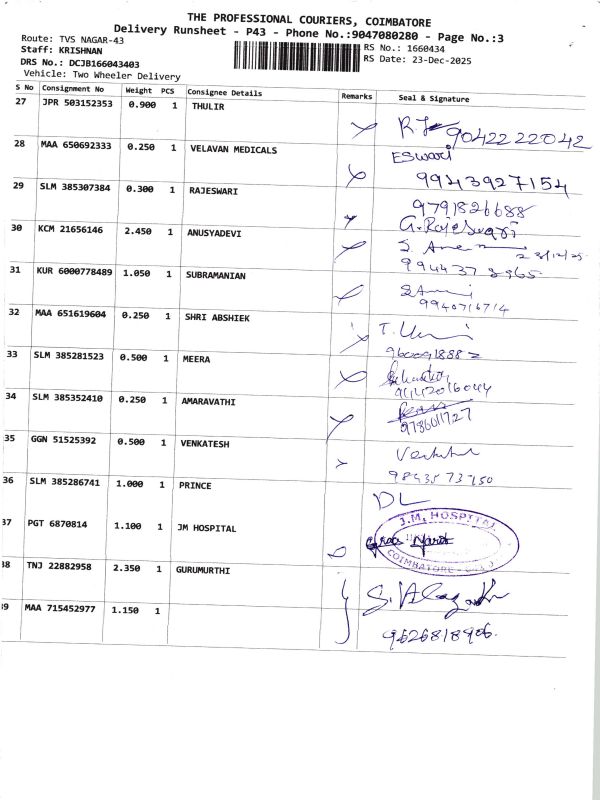 THE PROFESSIONAL COURIERS, COIMBATORE
Delivery Runsheet - P43 - Phone No.:9047080280 - Page No.:3
Route: TVS NAGAR-43
RS No.: 1660434
Staff: KRISHNAN
RS Date: 23-Dec-2025
DRS No.: DCJB166043403
Vehicle: Two Wheeler Delivery
S No Consignment No Weight PCS Consignee Details Remarks Seal & Signature
27 JPR 503152353 0.900 1 THULIR
9042222042
28 MAA 650692333 0.250 1 VELAVAN MEDICALS
ESwari
9943927154
29 SLM 385307384 0.300 1 RAJESWARI
9791826688
G. Rajeswari
30 KCM 21656146 2.450 1 ANUSYADEVI
23/12/25
9944373965
31 KUR 6000778489 1.050 1 SUBRAMANIAN
9940716714
32 MAA 651619604 0.250 1 SHRI ABSHIEK
9600918882
33 SLM 385281523 0.500 1 MEERA
34 SLM 385352410 0.250 1 AMARAVATHI
35 GGN 51525392 0.500 1 VENKATESH
36 SLM 385286741 1.000 1 PRINCE
DL
37 PGT 6870814 1.100 1 JM HOSPITAL
J.M. HOSPITAL
COIMBATORE
38 TNJ 22882958 2.350 1 GURUMURTHI
39 MAA 715452977 1.150 1
9626818906